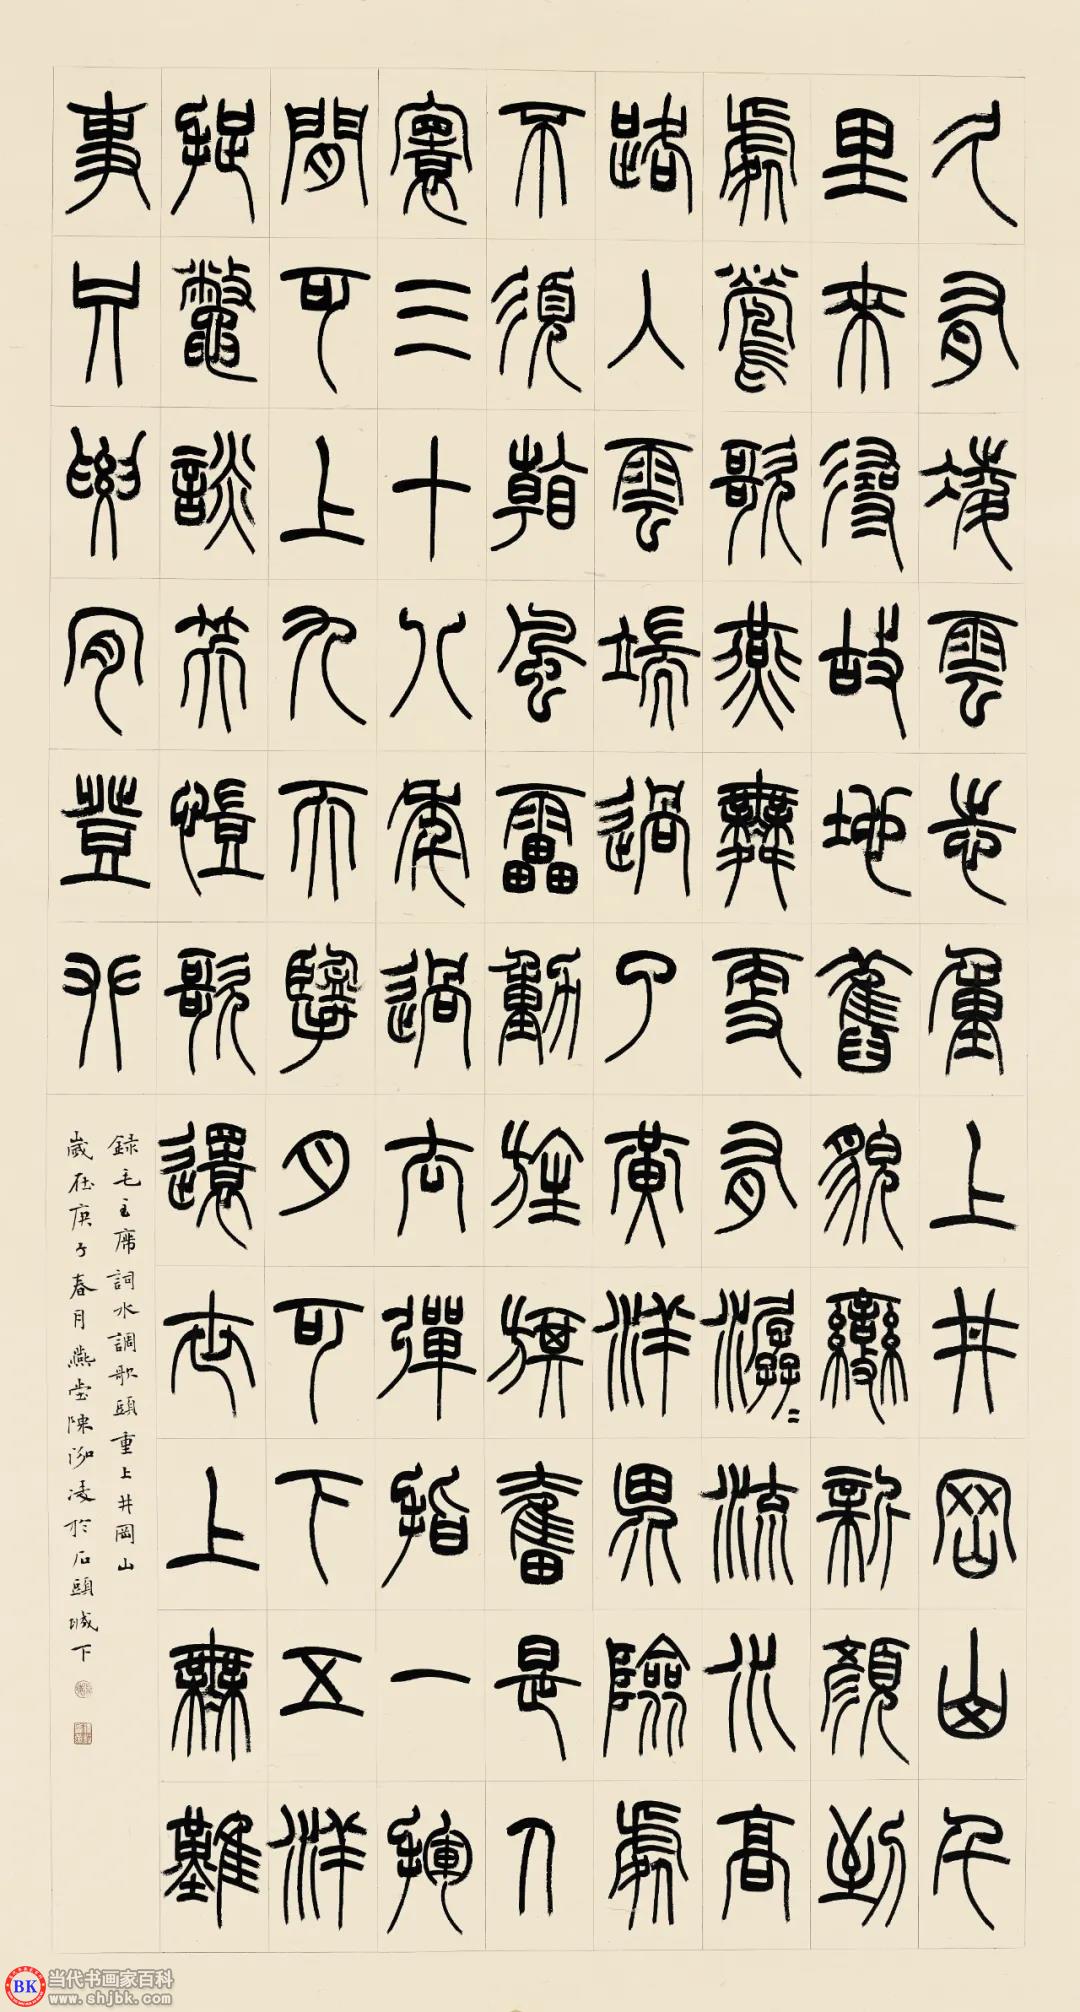 久有凌雲志重上井岡山千
里來尋故地舊貌變新顏到
處鶯歌燕舞更有潺〻流水高
路入雲端過了黃洋界險處
不須看風雷動旌旗奮是人
寰三十八年過去彈指一揮
間可上九天攬月可下五洋
捉鱉談笑凱歌還世上無難
事只要肯登攀
錄毛主席詞水調歌頭重上井岡山
歲在庚子春月燕堂陳泓凌於石頭城下
BK 当代书画家百科
www.shjbk.com